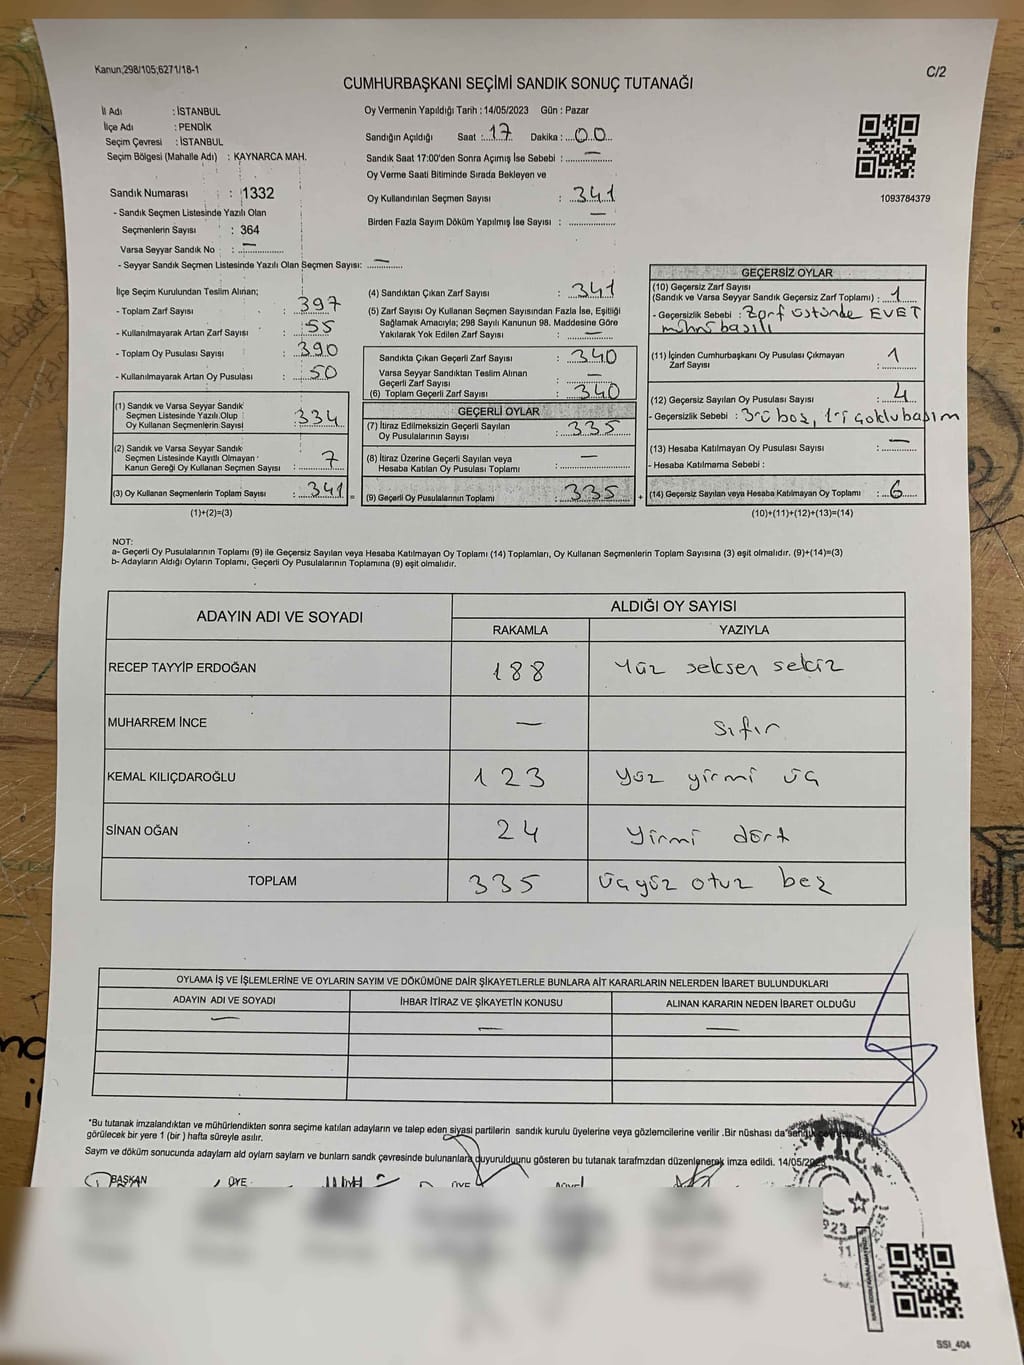 Kanun;298/105;6271/18-1
C/2
CUMHURBAŞKANI SEÇİMİ SANDIK SONUÇ TUTANAĞI
İl Adı : İSTANBUL
İlçe Adı : PENDİK
Seçim Çevresi : İSTANBUL
Seçim Bölgesi (Mahalle Adı) : KAYNARCA MAH.
Sandık Numarası : 1332
- Sandık Seçmen Listesinde Yazılı Olan
Seçmenlerin Sayısı : 364
Varsa Seyyar Sandık No : —
- Seyyar Sandık Seçmen Listesinde Yazılı Olan Seçmen Sayısı: —
Oy Vermenin Yapıldığı Tarih : 14/05/2023 Gün : Pazar
Sandığın Açıldığı Saat : 17 Dakika : 00
Sandık Saat 17:00'den Sonra Açımış İse Sebebi : —
Oy Verme Saati Bitiminde Sırada Bekleyen ve
Oy Kullandırılan Seçmen Sayısı : 341
Birden Fazla Sayım Döküm Yapılmış İse Sayısı : —
1093784379
İlçe Seçim Kurulundan Teslim Alınan;
- Toplam Zarf Sayısı : 397
- Kullanılmayarak Artan Zarf Sayısı : 55
- Toplam Oy Pusulası Sayısı : 390
- Kullanılmayarak Artan Oy Pusulası : 50
(1) Sandık ve Varsa Seyyar Sandık
Seçmen Listesinde Yazılı Olup
Oy Kullanan Seçmenlerin Sayısı : 334
(2) Sandık ve Varsa Seyyar Sandık
Seçmen Listesinde Kayıtlı Olmayan
Kanun Gereği Oy Kullanan Seçmen Sayısı : 7
(3) Oy Kullanan Seçmenlerin Toplam Sayısı : 341 =
(1)+(2)=(3)
(4) Sandıktan Çıkan Zarf Sayısı : 341
(5) Zarf Sayısı Oy Kullanan Seçmen Sayısından Fazla İse, Eşitliği
Sağlamak Amacıyla; 298 Sayılı Kanunun 98. Maddesine Göre
Yakılarak Yok Edilen Zarf Sayısı : —
Sandıkta Çıkan Geçerli Zarf Sayısı : 340
Varsa Seyyar Sandıktan Teslim Alınan
Geçerli Zarf Sayısı : —
(6) Toplam Geçerli Zarf Sayısı : 340
GEÇERLİ OYLAR
(7) İtiraz Edilmeksizin Geçerli Sayılan
Oy Pusulalarının Sayısı : 335
(8) İtiraz Üzerine Geçerli Sayılan veya
Hesaba Katılan Oy Pusulası Toplamı : —
(9) Geçerli Oy Pusulalarının Toplamı : 335 +
GEÇERSİZ OYLAR
(10) Geçersiz Zarf Sayısı
(Sandık ve Varsa Seyyar Sandık Geçersiz Zarf Toplamı) : 1
- Geçersizlik Sebebi : Zarf üstünde EVET
mührü basılı
(11) İçinden Cumhurbaşkanı Oy Pusulası Çıkmayan
Zarf Sayısı : 1
(12) Geçersiz Sayılan Oy Pusulası Sayısı : 4
- Geçersizlik Sebebi : 3'ü boş, 1'i çoklu basım
(13) Hesaba Katılmayan Oy Pusulası Sayısı : —
- Hesaba Katılmama Sebebi :
(14) Geçersiz Sayılan veya Hesaba Katılmayan Oy Toplamı : 6
(10)+(11)+(12)+(13)=(14)
NOT:
a- Geçerli Oy Pusulalarının Toplamı (9) ile Geçersiz Sayılan veya Hesaba Katılmayan Oy Toplamı (14) Toplamları, Oy Kullanan Seçmenlerin Toplam Sayısına (3) eşit olmalıdır. (9)+(14)=(3)
b- Adayların Aldığı Oyların Toplamı, Geçerli Oy Pusulalarının Toplamına (9) eşit olmalıdır.
ADAYIN ADI VE SOYADI
ALDIĞI OY SAYISI
RAKAMLA YAZIYLA
RECEP TAYYİP ERDOĞAN 188 Yüz seksen sekiz
MUHARREM İNCE — Sıfır
KEMAL KILIÇDAROĞLU 123 Yüz yirmi üç
SİNAN OĞAN 24 Yirmi dört
TOPLAM 335 Üçyüz otuz beş
OYLAMA İŞ VE İŞLEMLERİNE VE OYLARIN SAYIM VE DÖKÜMÜNE DAİR ŞİKAYETLERLE BUNLARA AİT KARARLARIN NELERDEN İBARET BULUNDUKLARI
ADAYIN ADI VE SOYADI İHBAR İTİRAZ VE ŞİKAYETİN KONUSU ALINAN KARARIN NEDEN İBARET OLDUĞU
— — —
*Bu tutanak imzalandıktan ve mühürlendikten sonra seçime katılan adayların ve talep eden siyasi partilerin sandık kurulu üyelerine veya gözlemcilerine verilir .Bir nüshası da sandık
görülecek bir yere 1 (bir ) hafta süreyle asılır.
Sayım ve döküm sonucunda adaylam ald oylarn saylarn ve bunlarn sandk çevresinde bulunanlara duyurulduunu gösteren bu tutanak tarafmzdan düzenlenerek imza edildi. 14/05/2023
BAŞKAN ÜYE ÜYE
T.C.
923
SSI_404